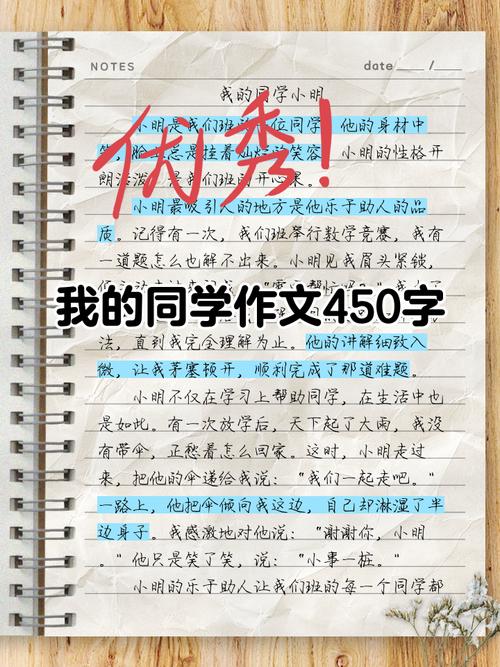 NOTES
date ____ / ____
我的同学小明
小明是我们班的 位同学 他的身材中
脸上总是挂着灿烂的笑容 小明的性格开
朗活泼 是我们班的开心果。
优秀!
小明最吸引人的地方是他乐于助人的品
质。记得有一次，我们班举行数学竞赛，我有
一道题怎么也解不出来。小明见我眉头紧锁，
我的同学作文450字
法，直到我完全理解为止。他的讲解细致入
微，让我茅塞顿开，顺利完成了那道难题。
小明不仅在学习上帮助同学，在生活中也
是如此。有一次放学后，天下起了大雨，我没
有带伞，正愁着怎么回家。这时，小明走过
来，把他的伞递给我说：“我们一起走吧。”
一路上，他把伞倾向我这边，自己却淋湿了半
边身子。我感激地对他说：“谢谢你，小明
。”他只是笑了笑，说：“小事一桩。”
小明的乐于助人让我们班的每一个同学都